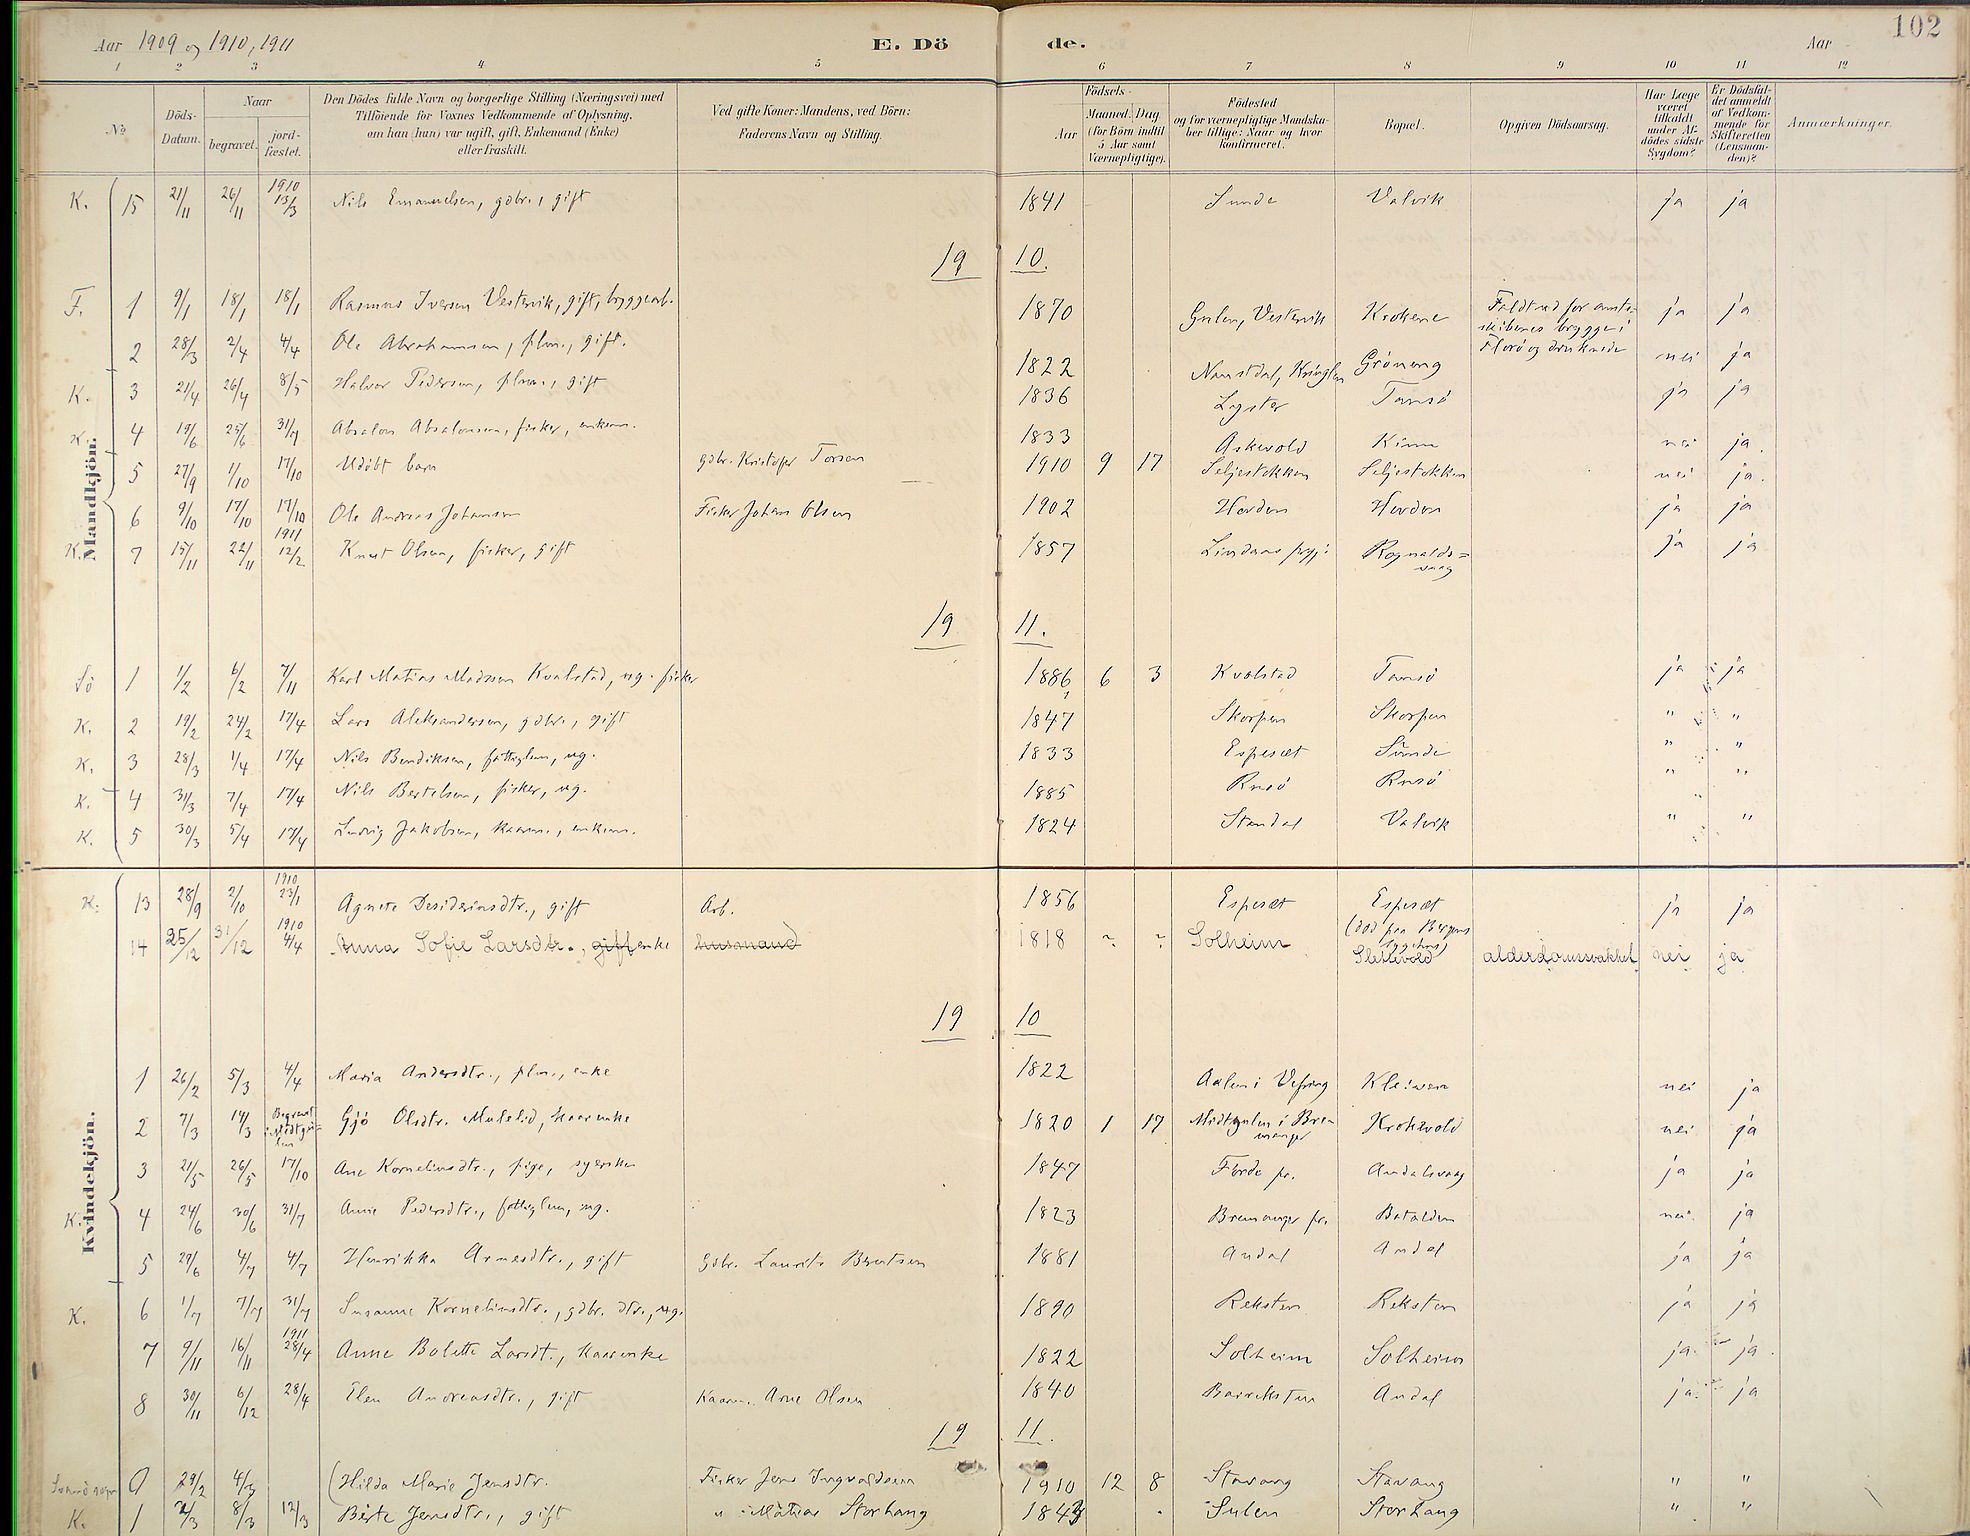 102
Aar 1909 og 1910, 1911 E. Dö de. Aar
1 2 3 4 5 6 7 8 9 10 11 12
No. Döds-Datum. Naar begravet. jord-fæstet. Den Dödes fulde Navn og borgerlige Stilling (Næringsvei) med Tilföiende for Voxnes Vedkommende af Oplysning, om han (hun) var ugift, gift, Enkemand (Enke) eller fraskilt. Ved gifte Koner: Mandens, ved Börn: Faderens Navn og Stilling. Födsels- Aar Maaned. Dag. (for Börn indtil 5 Aar samt Værnepligtige). Födested og for værnepligtige Mandskaber tillige: Naar og hvor konfirmeret. Bopæl. Opgiven Dödsaarsag. Har Læge været tilkaldt under Afdödes sidste Sygdom? Er Dödsfaldet anmeldt af Vedkommende for Skifteretten (Lensmanden)? Anmærkninger.
Mandkjön.
K. 15 21/11 26/11 1910 13/3 Nils Emanuelsen, gdbr., gift 1841 Sunde Valvik ja ja
19 10.
F. 1 9/1 18/1 18/1 Rasmus Iversen Vestervik, gift, bryggearb. 1870 Gulen, Vestervik Krokene Faldt ned for amts-skibenes brygge i Florö og druknede ja ja
2 28/3 2/4 4/4 Ole Abrahamsen, plm., gift. 1822 Gröneng nei ja
K. 3 21/4 26/4 8/5 Halvor Pedersen, plm., gift 1836 Lyster Tansö ja ja
K. 4 19/6 25/6 31/7 Absalon Absalonsen, fisker, enkem. 1833 Askevold Kinn nei ja.
5 27/9 1/10 17/10 Udöbt barn Gdbr. Kristofer Torsen 1910 9 17 Seljestokken Seljestokken nei ja.
6 9/10 17/10 17/10 Ole Andreas Johansen Fisker Johan Olsen 1902 Hovden Hovden ja ja
K. 7 15/11 22/11 1911 12/2 Knut Olsen, fisker, gift 1857 Lindaas prgj: Rognalds=vaag ja ja
19 11.
Sö 1 1/2 6/2 7/11 Karl Matias Madssen Kvalstad, ug. fisker 1886 6 3 Kvalstad Tansö ja ja
K. 2 19/2 24/2 17/4 Lars Aleksandersen, gdbr., gift 1847 Skorpen Skorpen " "
K. 3 28/3 1/4 17/4 Nils Bendiksen, fattiglem, ug. 1833 Espeset Sunde " "
K. 4 31/3 7/4 17/4 Nils Bertelsen, fisker, ug. 1885 Rusö Rusö " "
K. 5 30/3 5/4 17/4 Ludvig Jakobsen, kaarm., enkem. 1824 Standal Valvik " "
Kvindekjön.
K. 13 28/9 2/10 1910 23/1 Agnete Desideriusdtr., gift Arb. 1856 Espeset Espeset (död paa Bergens Sygehus) ja ja
14 25/12 31/12 1910 4/4 Anna Sofie Larsdtr., gift enke husmand 1818 ? ? Solheim Slettevold alderdomssvakhet nei ja
19 10
1 26/2 5/3 4/4 Maria Andersdtr., plm., enke 1822 Kleiven nei ja
2 7/3 14/3 Begravet i Midtgulen Gjö Olsdtr. Mulelid, kaarenke 1820 1 17 Midtgulen i Bremanger Krokevold nei ja
3 21/5 26/5 17/10 Ane Korneliusdtr., pige, syerske 1847 Förde pr. Andalsvaag ja ja
K. 4 24/6 30/6 31/7 Anne Pedersdtr., fattiglem, ug. 1823 Bremanger pr. Batalden nei ja
5 29/6 4/7 4/7 Henrikka Arnesdtr., gift Gdbr. Laurits Berentsen 1881 Andal Andal ja ja
K. 6 1/7 7/7 31/7 Susanne Korneliusdtr., gdbr. dtr., ug. 1890 Reksten Reksten ja ja
7 9/11 16/11 1911 28/4 Anne Bolette Larsdt., kaarenke 1822 Solheim Solheim ja. ja.
8 30/11 6/12 28/4 Elen Andreasdtr., gift Kaarm. Arne Olsen 1840 Bareksten Andal ja. ja
19 11.
0 29/2 4/3 (Hilda Marie Jensdtr. Fisker Jens Ingvaldsen 1910 12 8 Stavang Stavang " "
K. 1 2/3 8/3 12/3 Berte Jensdtr., gift " Matias Storhaug 1843 Sulen Storhaug " "